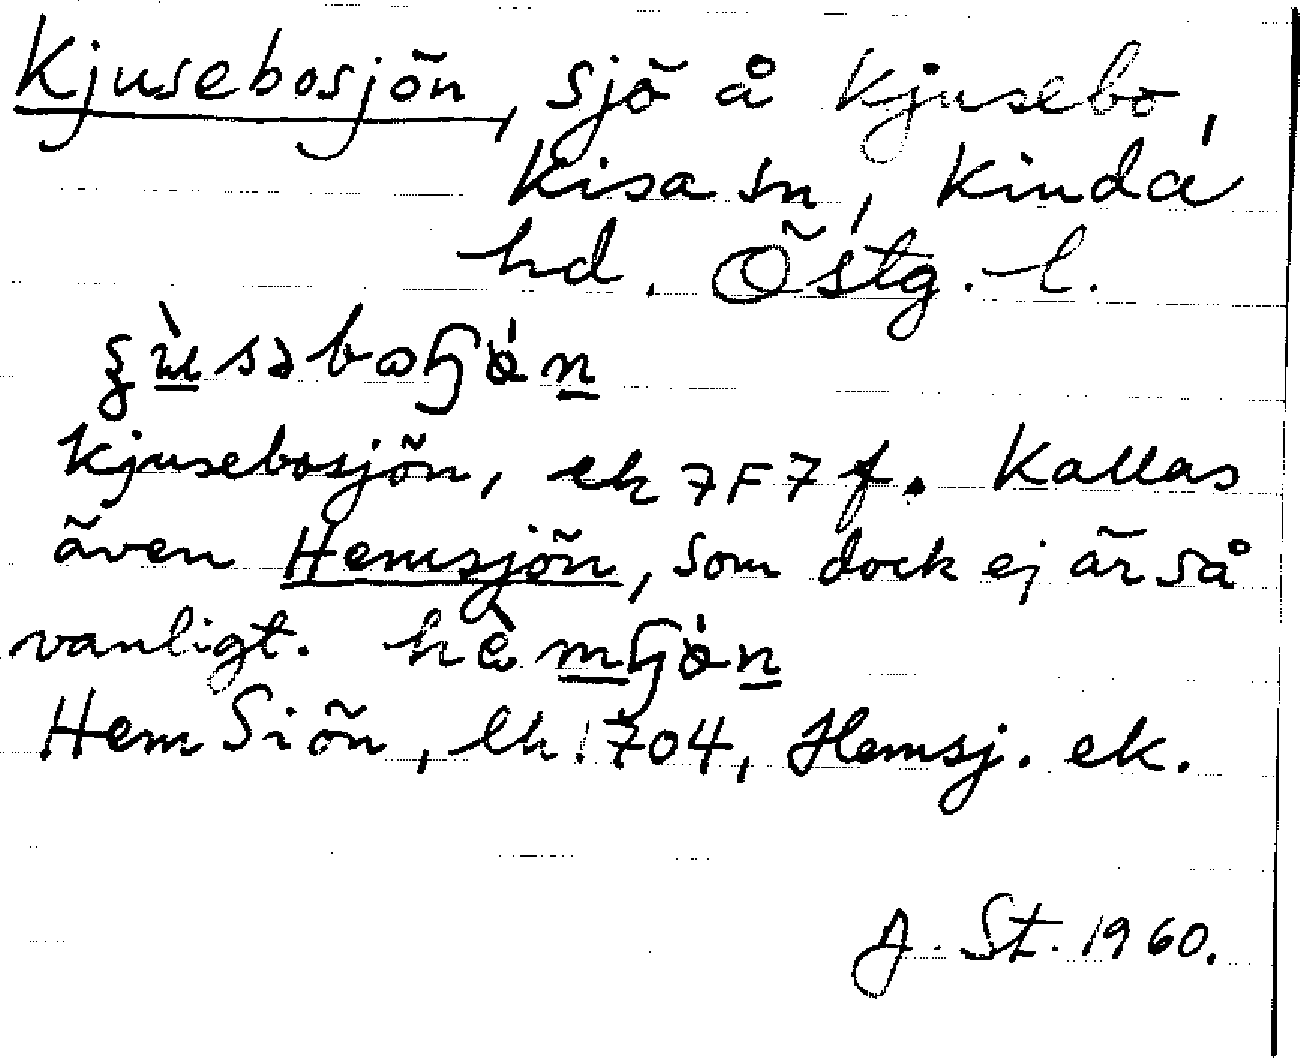 Kjusebosjön, sjö å Kjusebo,
Kisa sn, Kinda
hd. Östg. l.
Kjusebosjön, ek 7F7f. Kallas
även Hemsjön, som dock ej är så
vanligt.
Hem Siön, lh. 1704, Hemsj. ek.
J. St. 1960.